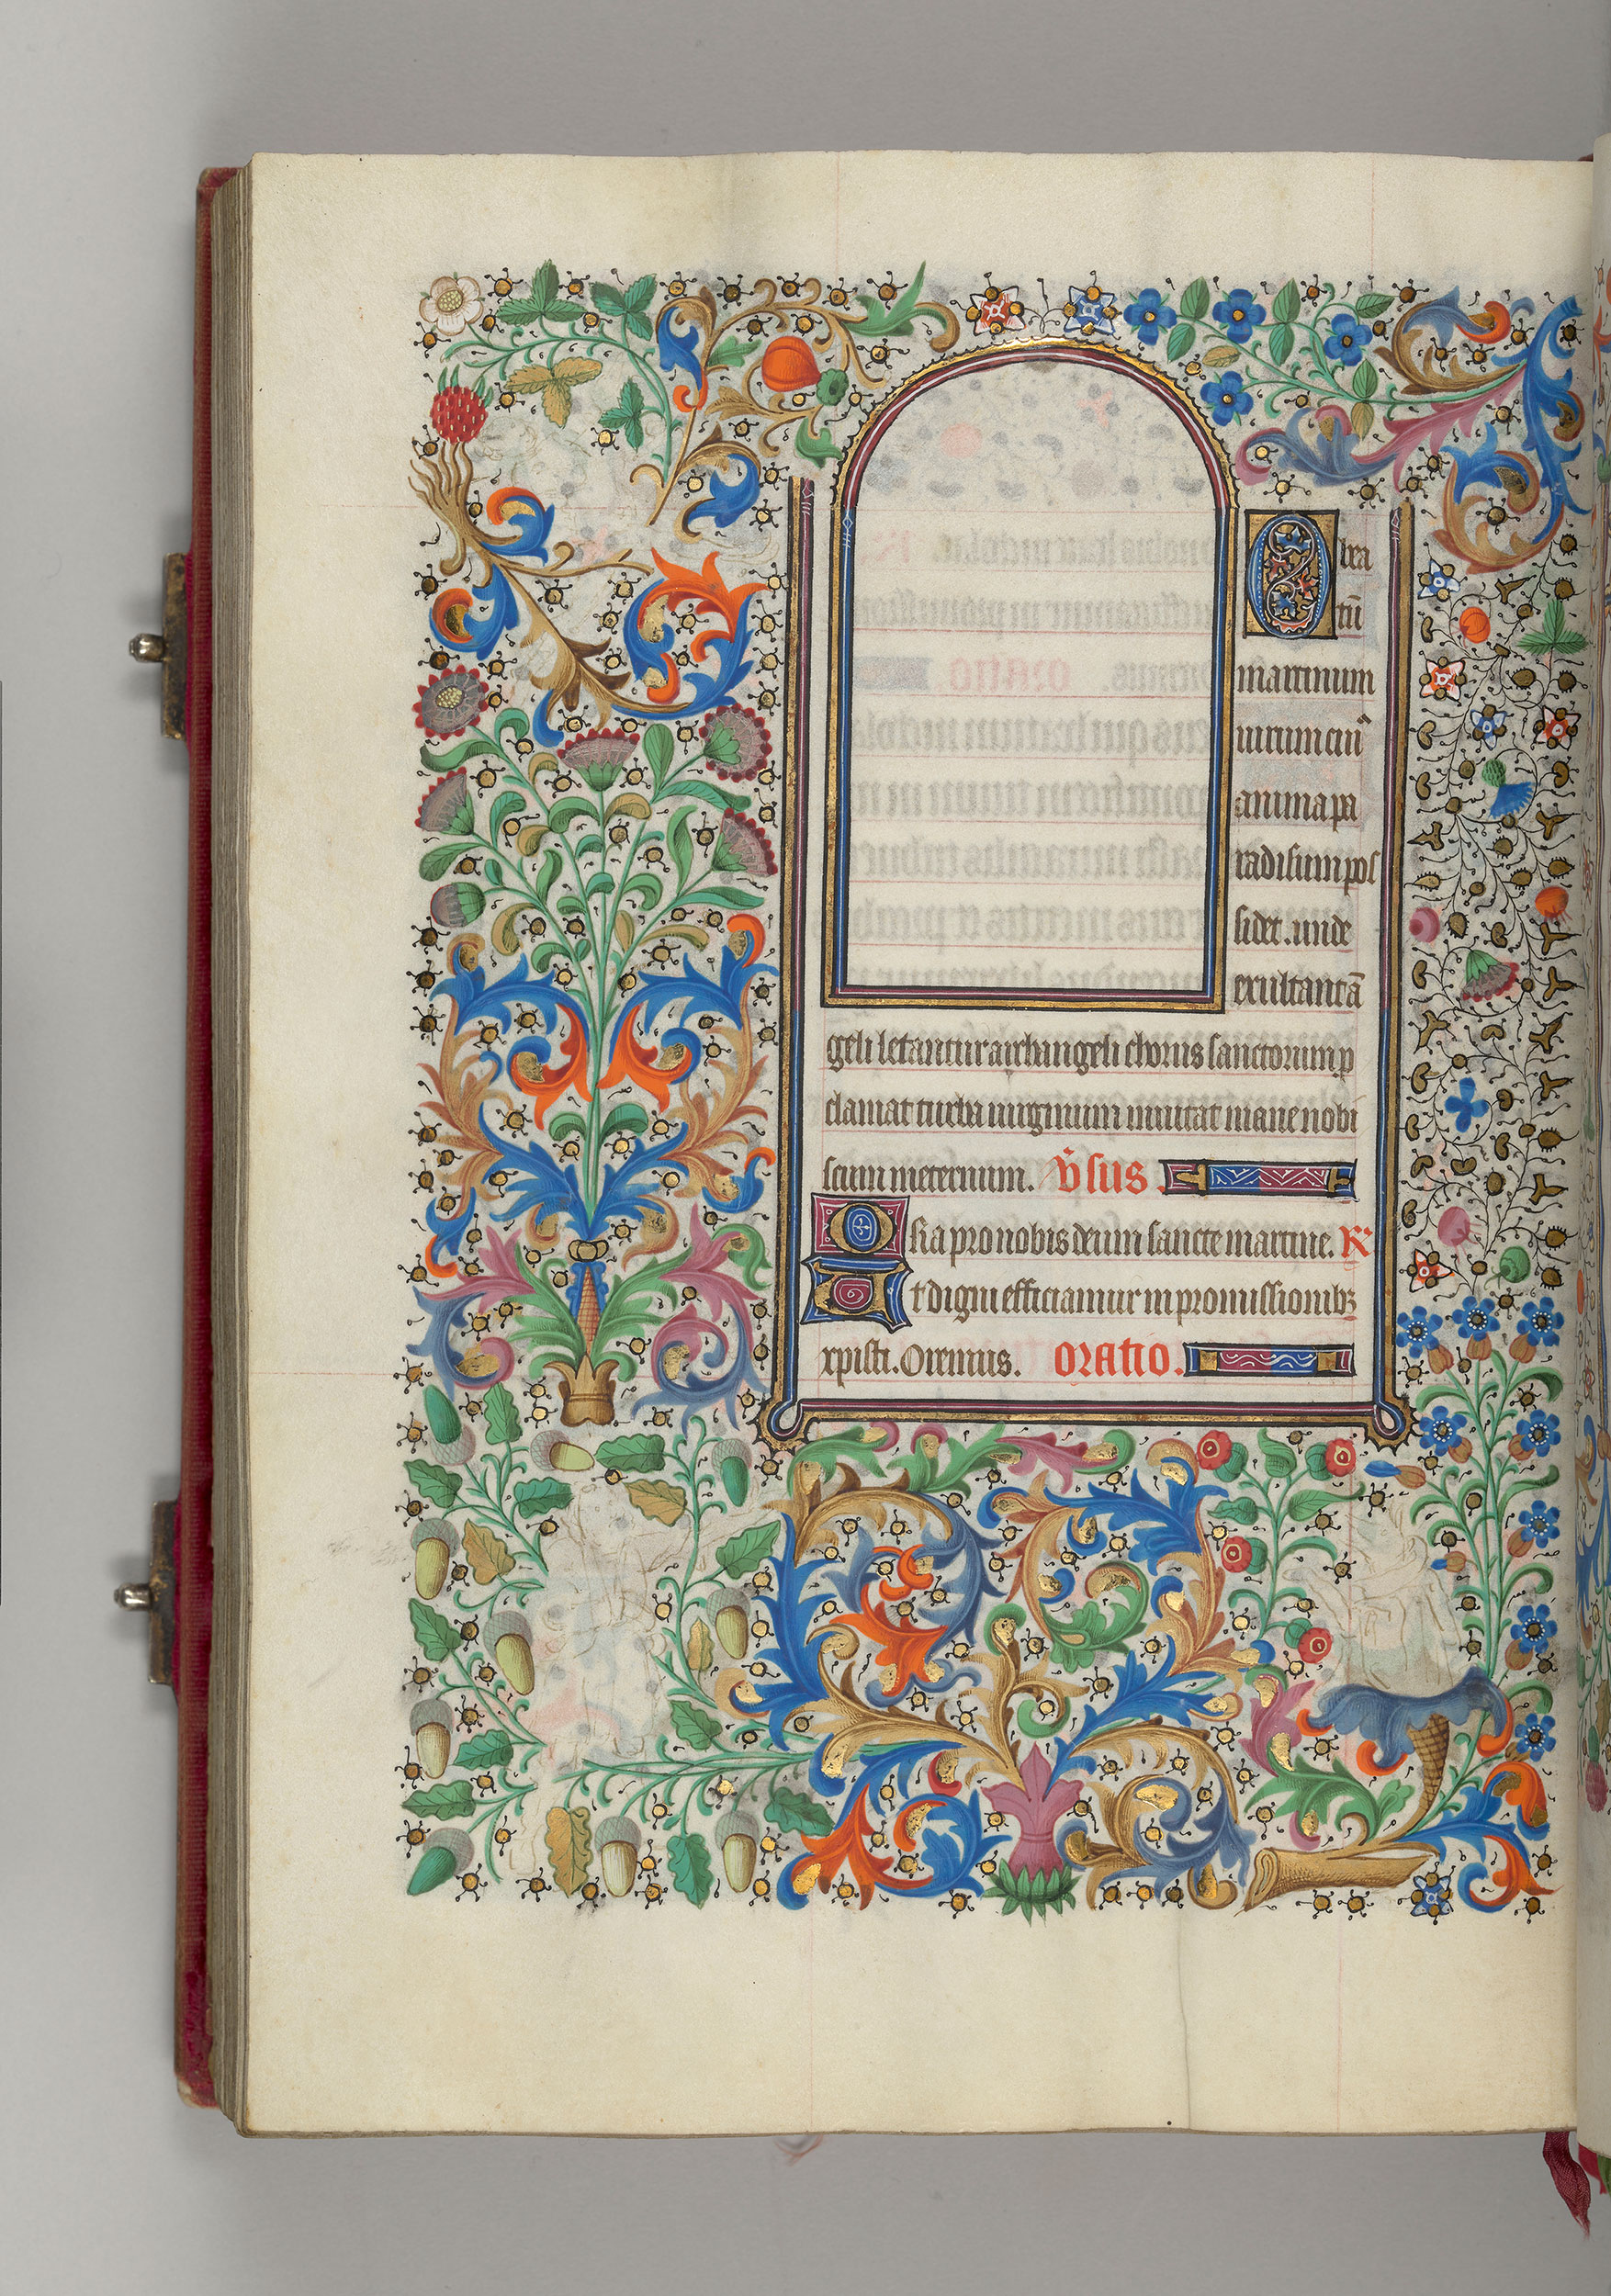 O bea
tū
martinum
uirum cuiꝰ
anima pa
radisum pos
sidet. unde
exultant ā
geli letantur archangeli chorus sanctorum p
clamat turba uirginum inuitat mane nobi
scum in eternum. v̄sus.
Ora pro nobis deum sancte martine. R
Et digni efficiamur in promissionibꝫ
xpisti. Oremus. oratio.